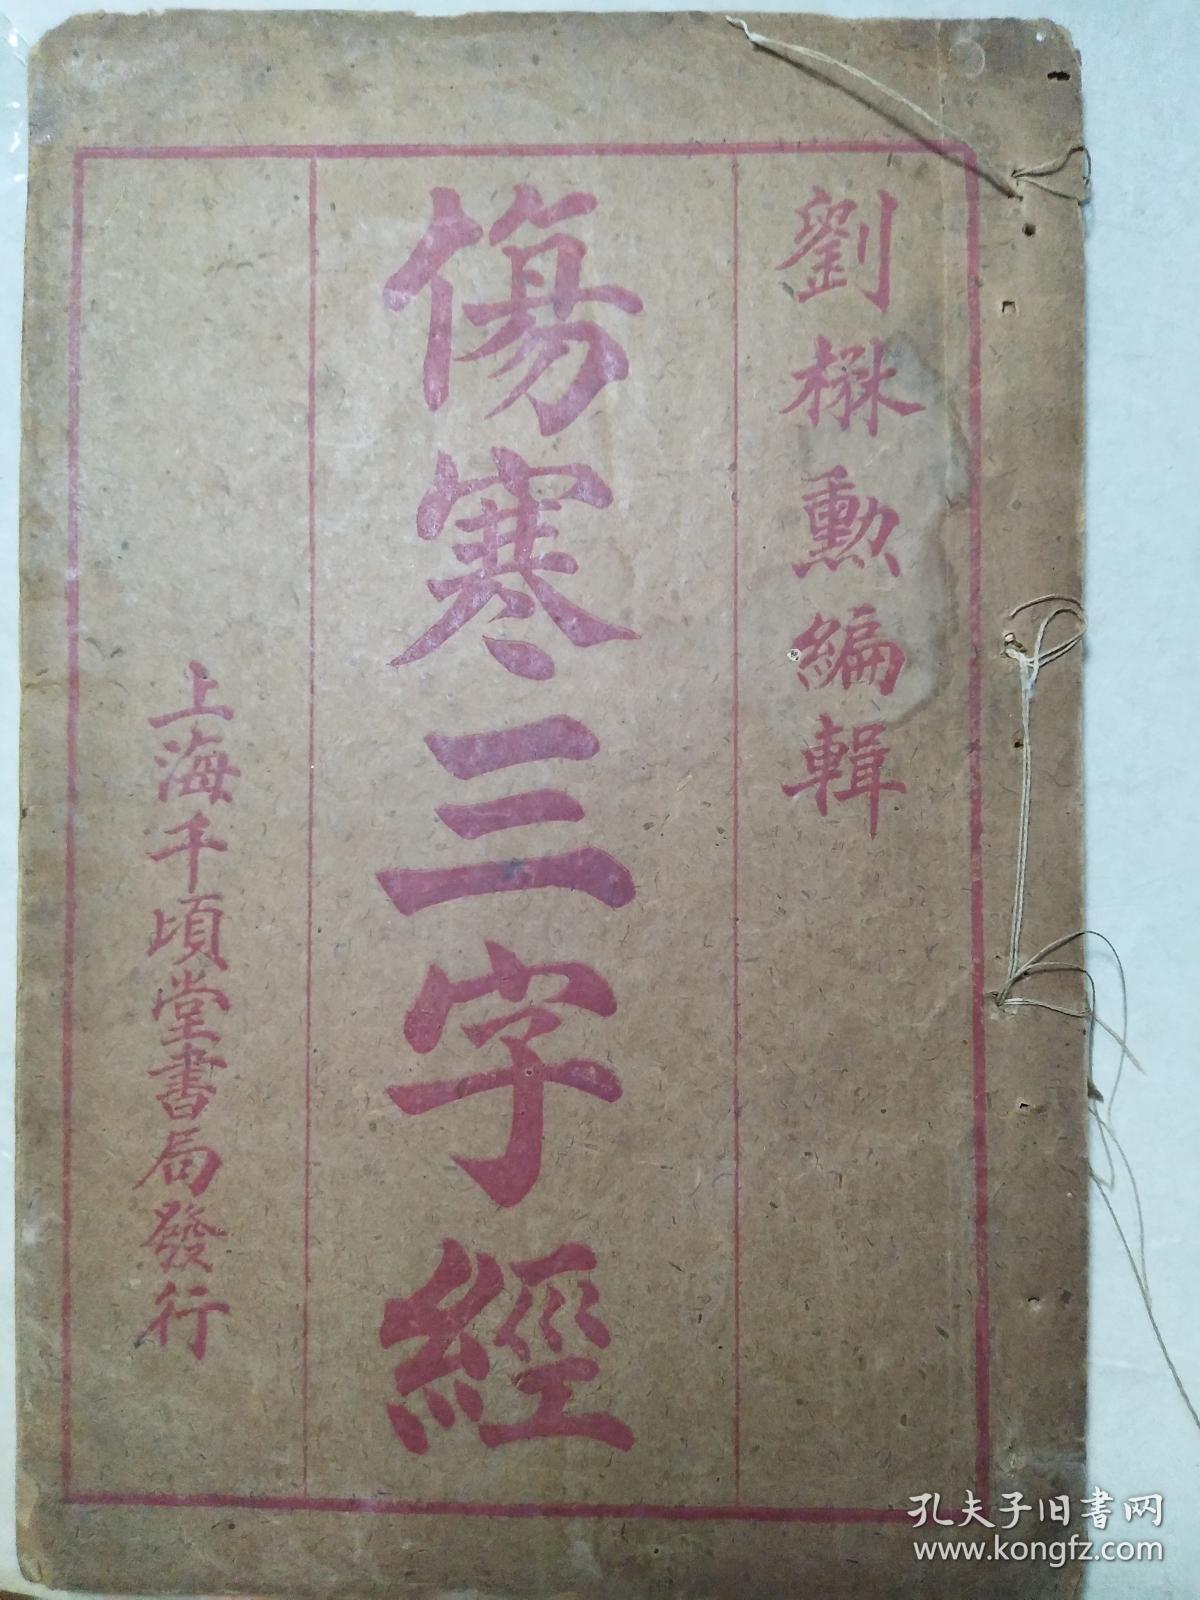 劉楙勳編輯
傷寒三字經
上海千頃堂書局發行
孔夫子旧书网
www.kongfz.com